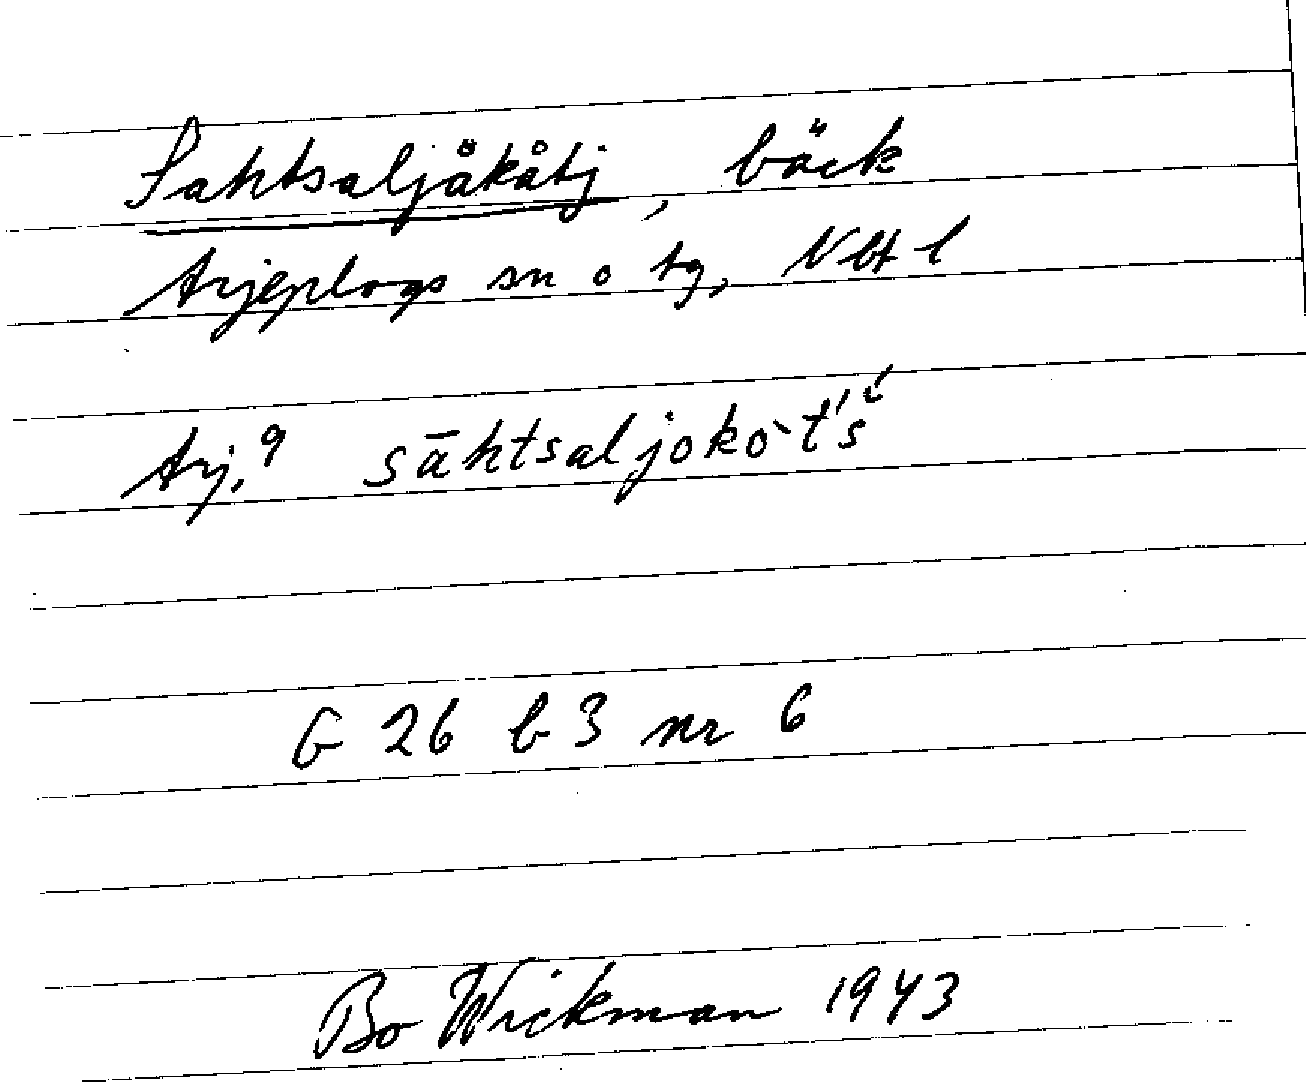 Sahtsaljåkåtj, bäck
Arjeplogs sn o tg, Nbt l
Arj.9 sāhtsaljokò̀t´š́
G 26 b 3 nr 6
Bo Wickman 1943